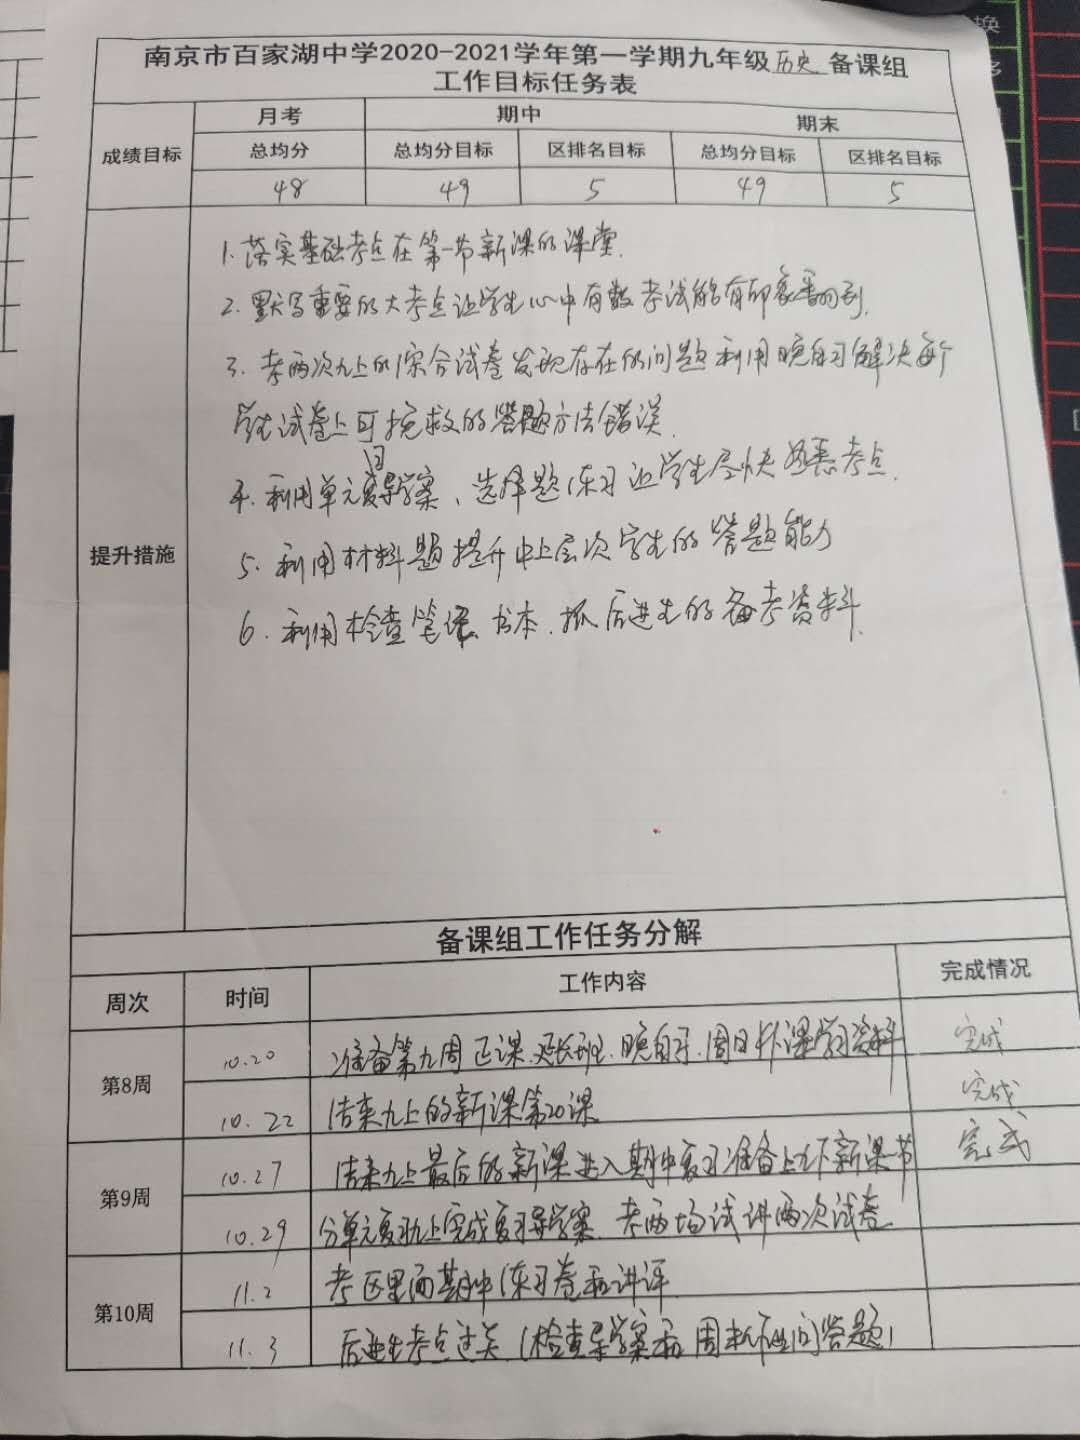 换
南京市百家湖中学2020-2021学年第一学期九年级历史备课组
工作目标任务表
成绩目标 月考 期中 期末
总均分 总均分目标 区排名目标 总均分目标 区排名目标
48 49 5 49 5
提升措施
1. 落实基础考点在第一节新课的课堂.
2. 默写重要的大考点让学生心中有数考试能有印象翻到.
3. 考两次九上的综合试卷发现存在的问题利用晚自习解决每个
学生试卷上可挽救的答题方法错误.
4. 利用单元复习导学案、选择题练习让学生尽快熟悉考点.
5. 利用材料题提升中上层次学生的答题能力
6. 利用检查笔记、书本.抓后进生的备考资料.
备课组工作任务分解
周次 时间 工作内容 完成情况
第8周 10.20 准备第九周正课.延长班.晚自习.周日补课学习资料 完成
10.22 结束九上的新课第20课 完成
第9周 10.27 结束九上最后的新课进入期中复习准备上九下新课节 完成
10.29 分单元复习九上完成复习导学案.考两场试讲两次试卷
第10周 11.2 考区里面期中练习卷和讲评
11.3 后进生考点过关.(检查导学案和周末问答题)